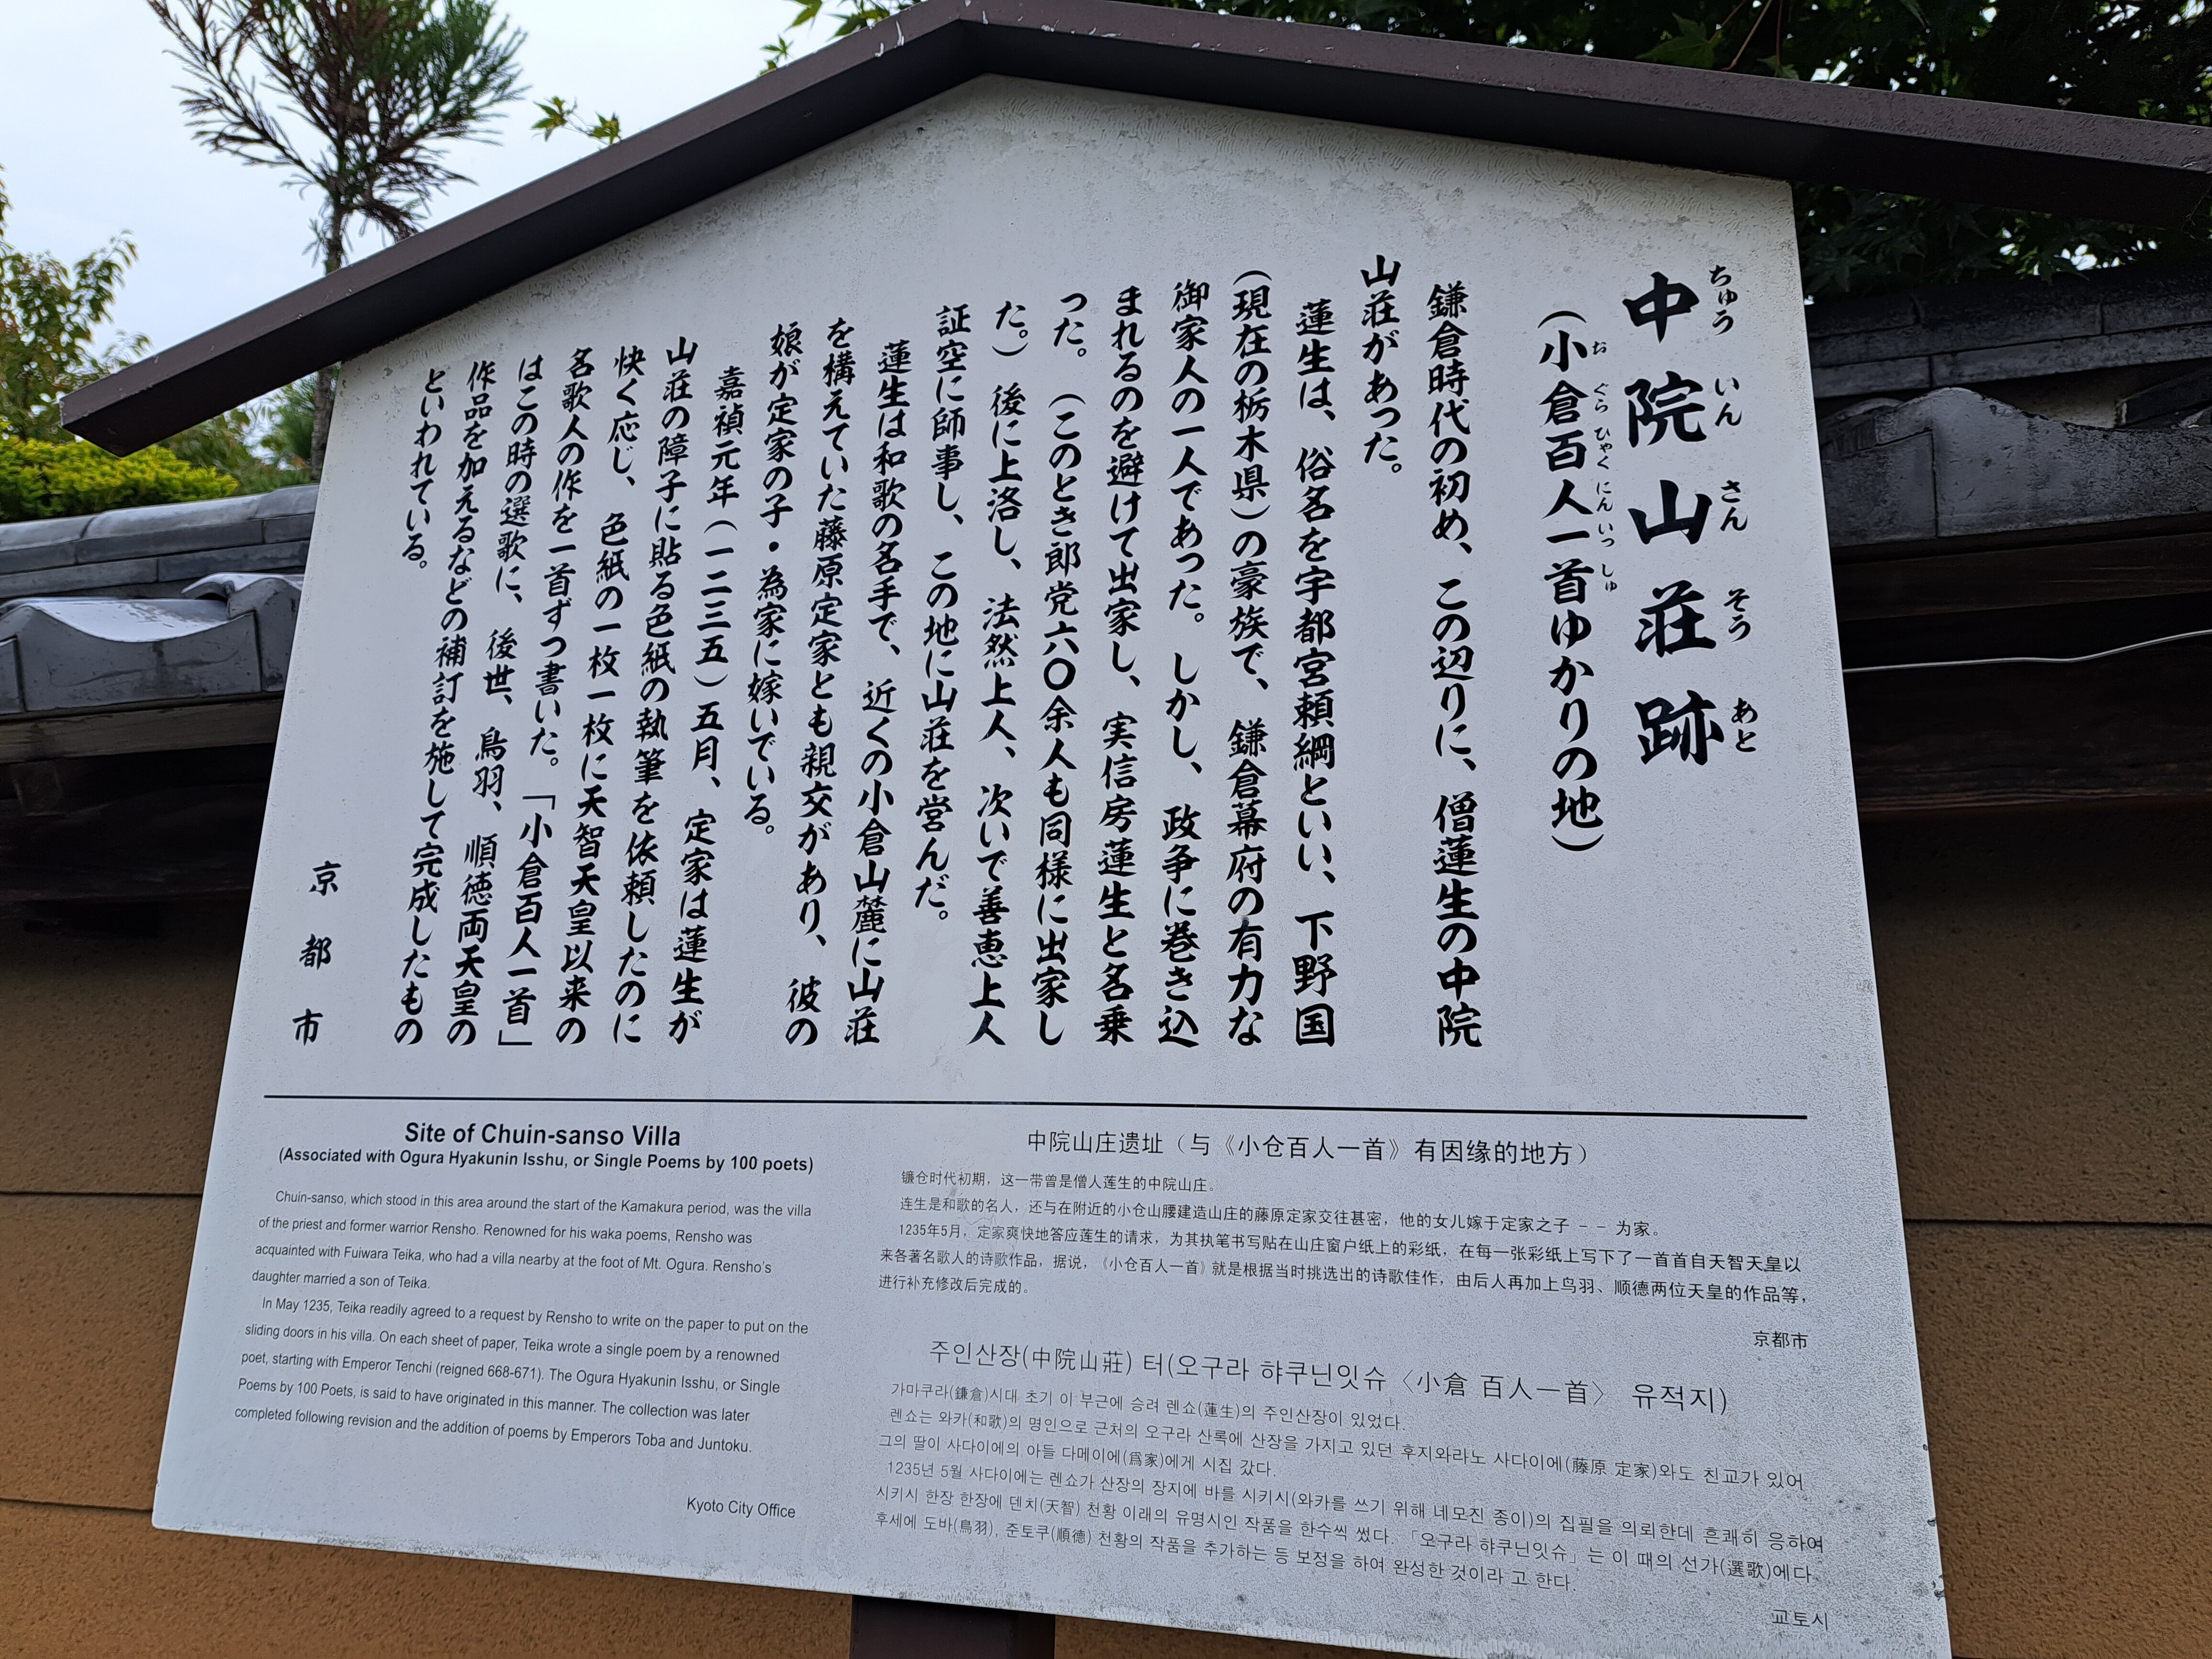 中院山荘跡
ちゅういんさんそうあと
(小倉百人一首ゆかりの地)
おぐらひゃくにんいっしゅ
鎌倉時代の初め、この辺りに、僧蓮生の中院
山荘があった。
蓮生は、俗名を宇都宮頼綱といい、下野国
(現在の栃木県)の豪族で、鎌倉幕府の有力な
御家人の一人であった。しかし、政争に巻き込
まれるのを避けて出家し、実信房蓮生と名乗
った。(このとき郎党六〇余人も同様に出家し
た。)後に上洛し、法然上人、次いで善恵上人
証空に師事し、この地に山荘を営んだ。
蓮生は和歌の名手で、近くの小倉山麓に山荘
を構えていた藤原定家とも親交があり、彼の
娘が定家の子・為家に嫁いでいる。
嘉禎元年(一二三五)五月、定家は蓮生が
山荘の障子に貼る色紙の執筆を依頼したのに
快く応じ、色紙の一枚一枚に天智天皇以来の
名歌人の作を一首ずつ書いた。「小倉百人一首」
はこの時の選歌に、後世、鳥羽、順徳両天皇の
作品を加えるなどの補訂を施して完成したもの
といわれている。
京都市
Site of Chuin-sanso Villa
(Associated with Ogura Hyakunin Isshu, or Single Poems by 100 poets)
Chuin-sanso, which stood in this area around the start of the Kamakura period, was the villa
of the priest and former warrior Rensho. Renowned for his waka poems, Rensho was
acquainted with Fuiwara Teika, who had a villa nearby at the foot of Mt. Ogura. Rensho's
daughter married a son of Teika.
In May 1235, Teika readily agreed to a request by Rensho to write on the paper to put on the
sliding doors in his villa. On each sheet of paper, Teika wrote a single poem by a renowned
poet, starting with Emperor Tenchi (reigned 668-671). The Ogura Hyakunin Isshu, or Single
Poems by 100 Poets, is said to have originated in this manner. The collection was later
completed following revision and the addition of poems by Emperors Toba and Juntoku.
Kyoto City Office
中院山庄遗址（与《小仓百人一首》有因缘的地方）
镰仓时代初期，这一带曾是僧人莲生的中院山庄。
连生是和歌的名人，还与在附近的小仓山腰建造山庄的藤原定家交往甚密，他的女儿嫁于定家之子 －－ 为家。
1235年5月，定家爽快地答应莲生的请求，为其执笔书写贴在山庄窗户纸上的彩纸，在每一张彩纸上写下了一首首自天智天皇以
来各著名歌人的诗歌作品，据说，《小仓百人一首》就是根据当时挑选出的诗歌佳作，由后人再加上鸟羽、顺德两位天皇的作品等，
进行补充修改后完成的。
京都市
주인산장(中院山莊) 터(오구라 햐쿠닌잇슈〈小倉 百人一首〉 유적지)
가마쿠라(鎌倉)시대 초기 이 부근에 승려 렌쇼(蓮生)의 주인산장이 있었다.
렌쇼는 와카(和歌)의 명인으로 근처의 오구라 산록에 산장을 가지고 있던 후지와라노 사다이에(藤原 定家)와도 친교가 있어
그의 딸이 사다이에의 아들 다메이에(爲家)에게 시집 갔다.
1235년 5월 사다이에는 렌쇼가 산장의 장지에 바를 시키시(와카를 쓰기 위해 네모진 종이)의 집필을 의뢰한데 흔쾌히 응하여
시키시 한장 한장에 덴치(天智) 천황 이래의 유명시인 작품을 한수씩 썼다. 「오구라 햐쿠닌잇슈」는 이 때의 선가(選歌)에다
후세에 도바(鳥羽), 준토쿠(順德) 천황의 작품을 추가하는 등 보정을 하여 완성한 것이라 고 한다.
교토시